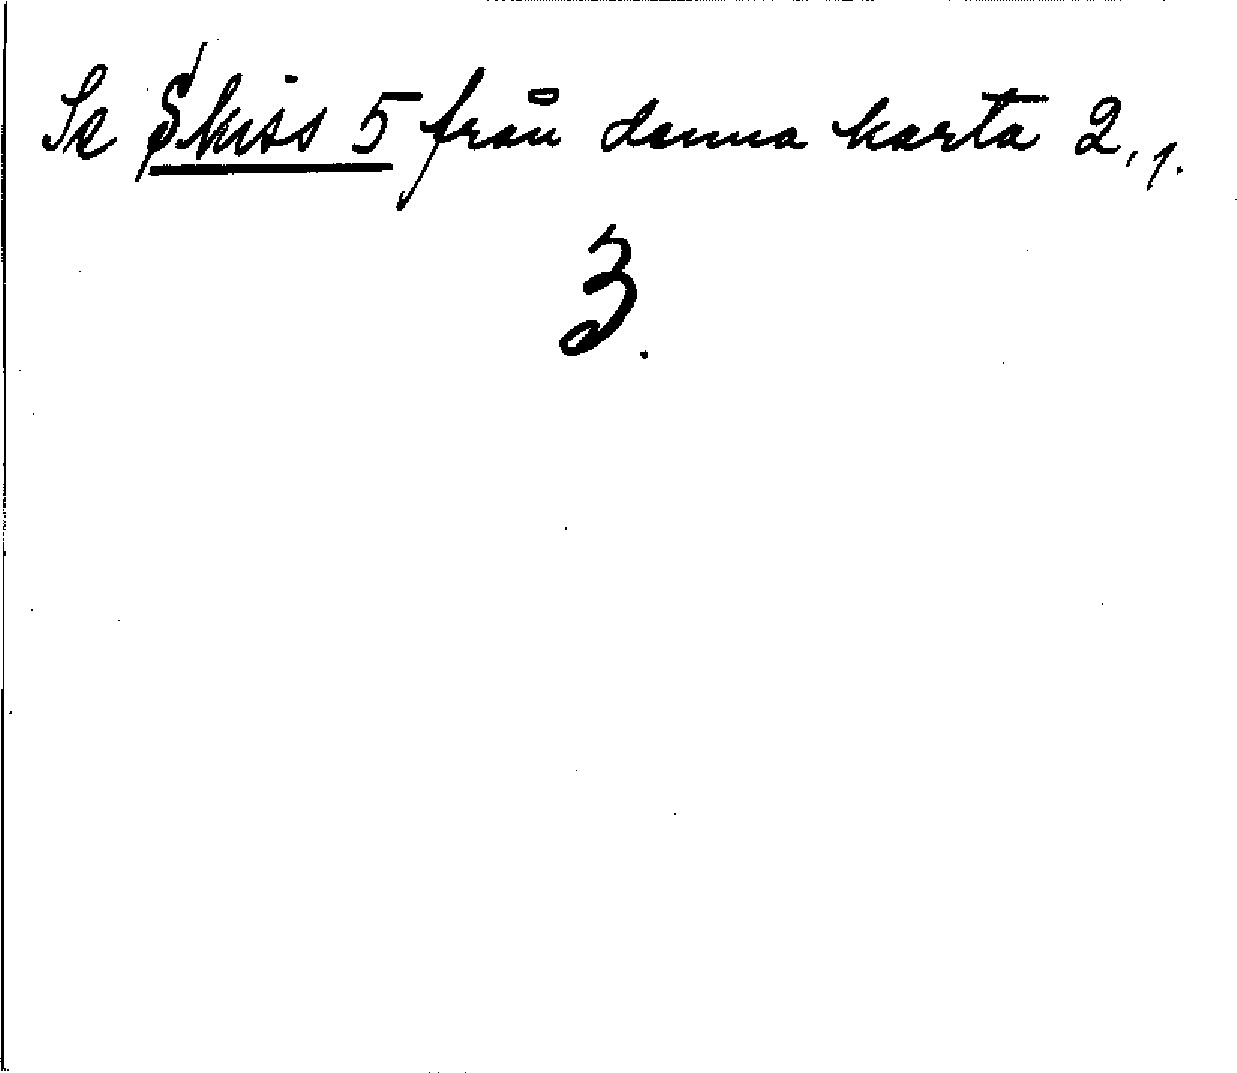 Se Skiss 5 från denna karta 2, 1.
3.